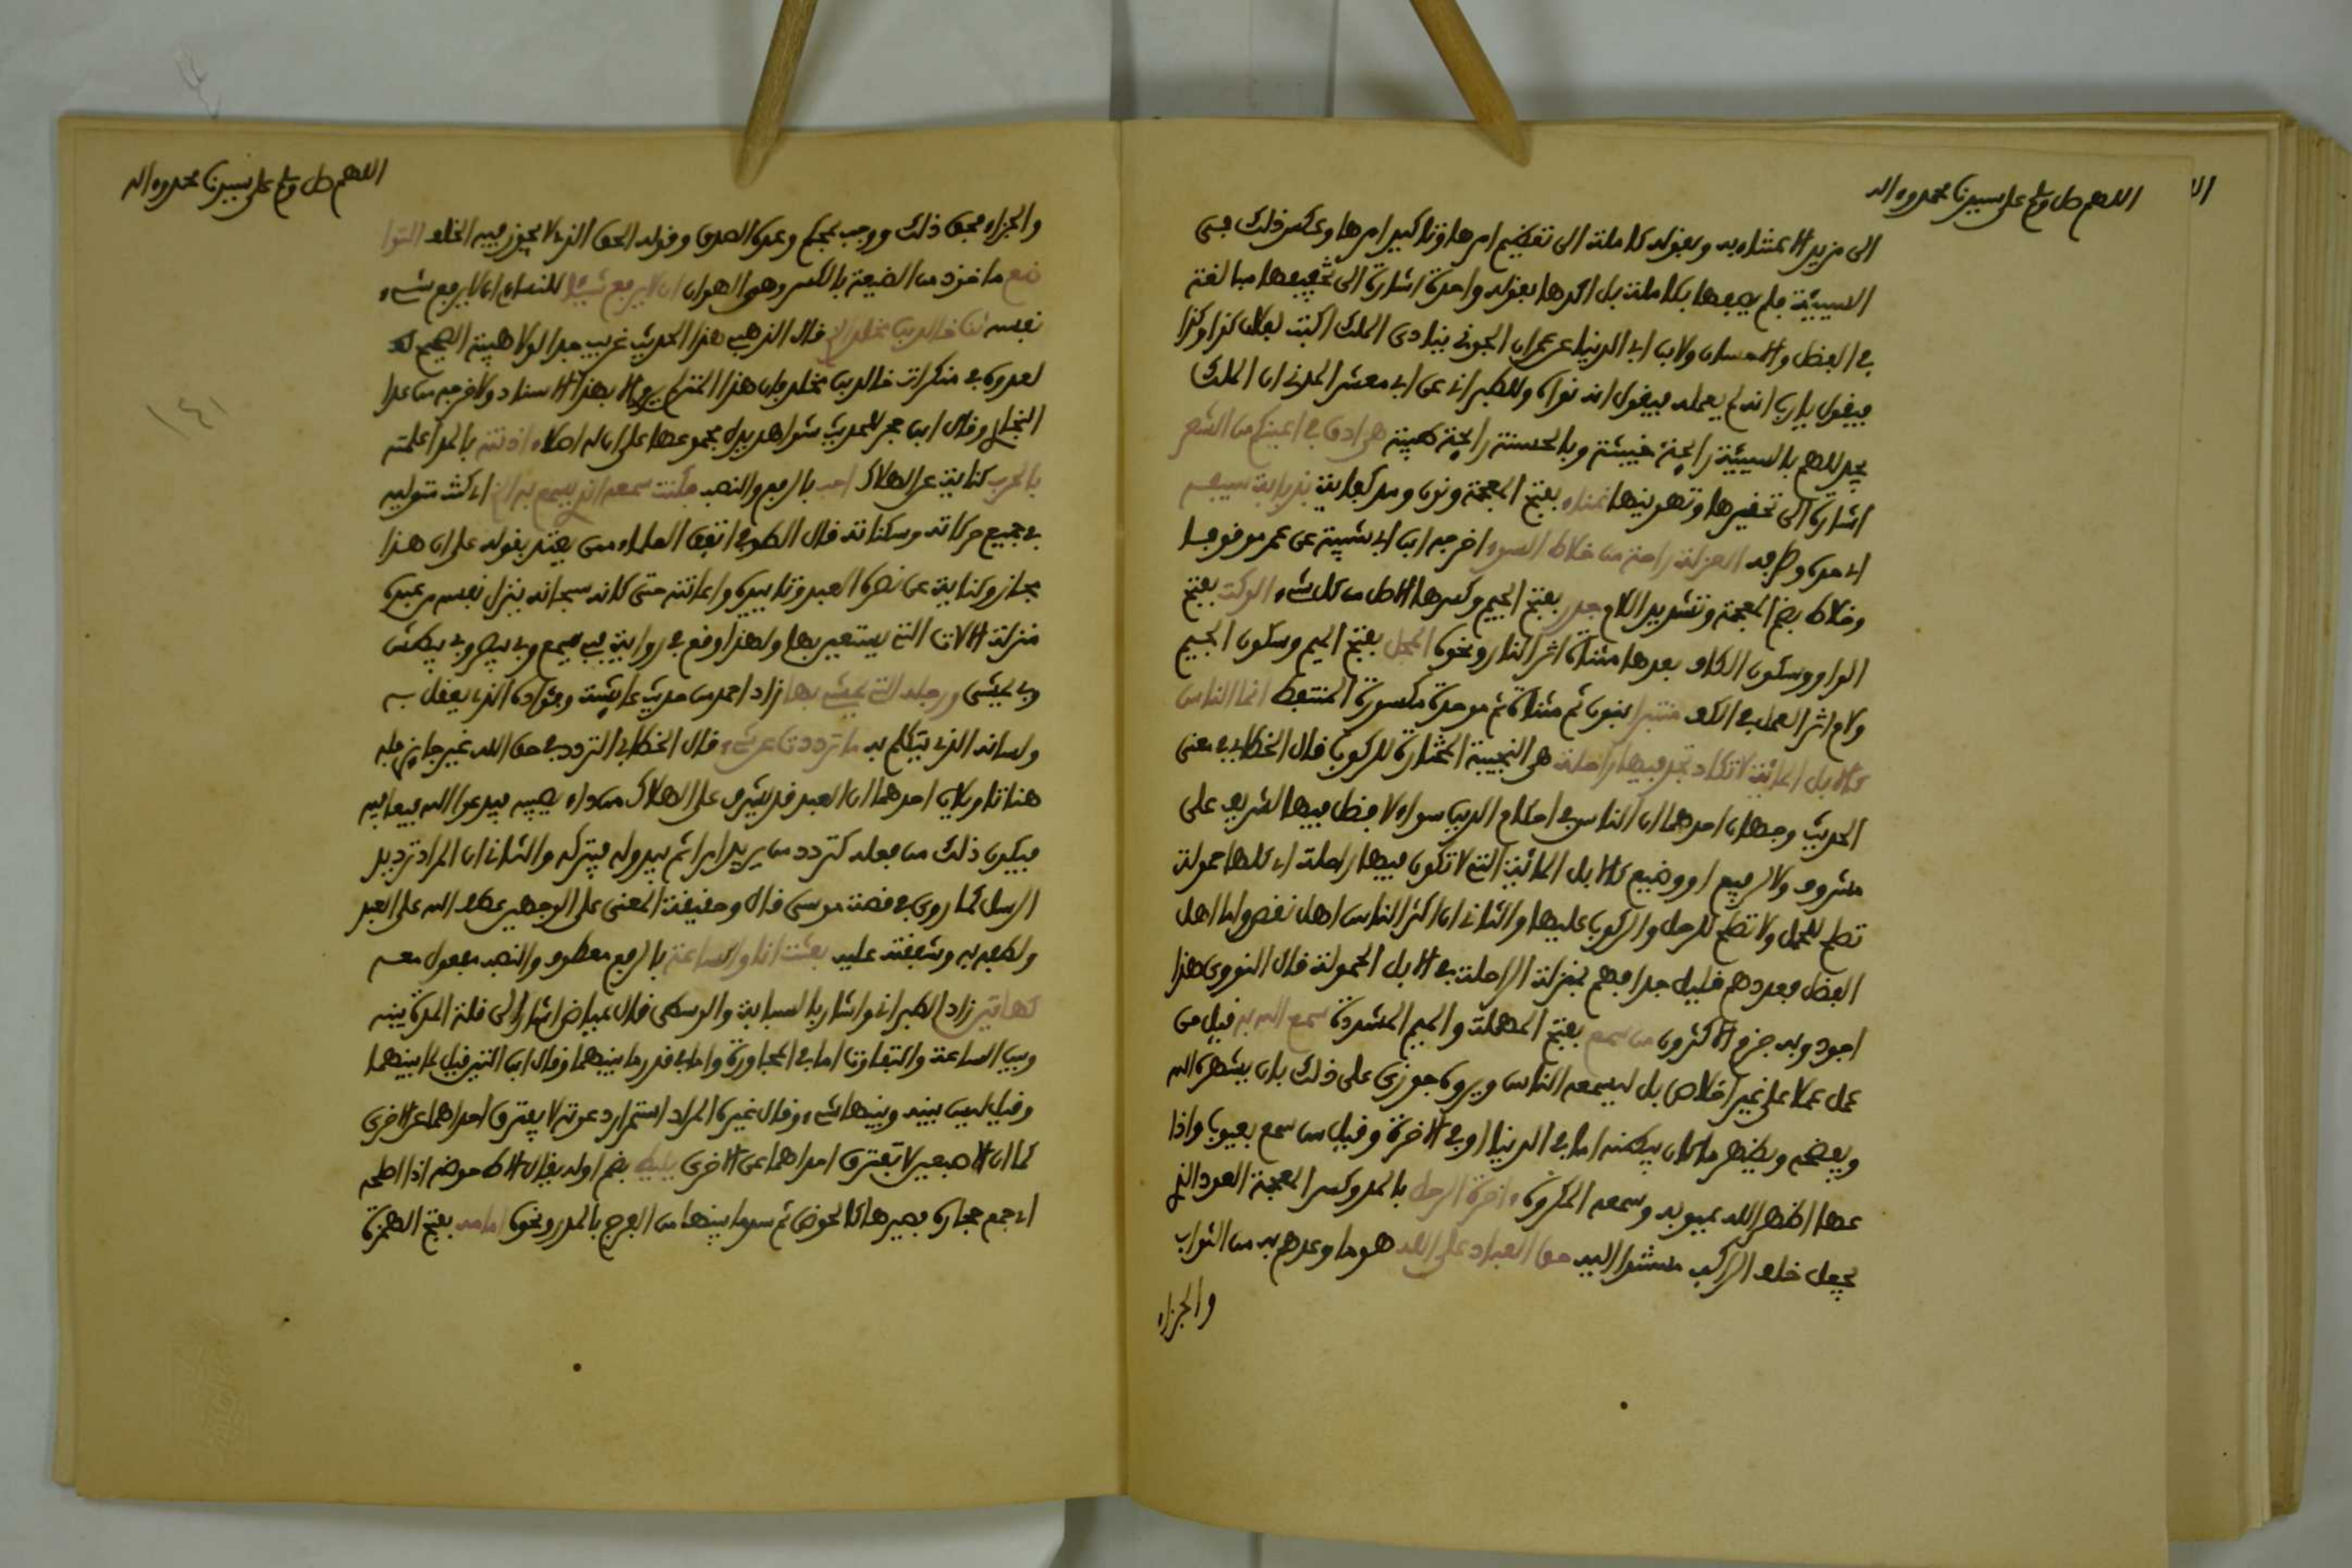 اللهم صل وسلم على سيدنا محمد وءاله
الى مزيد الاعتناء به وبقوله كاملة الى تعظيم امرها وتاكيد امرها وعكس ذلك في
السيئة فلم يصفها بكاملة بل اكدها بقوله واحدة اشارة الى تخفيفها مبالغة
في الفضل والاحسان ولابن ابي الدنيا عن عمران الجوني ينادى الملك اكتب لفلان كذا وكذا
فيقول يا رب انه لم يعمله فيقول انه نواه وللطبراني عن ابي معشر المدني ان الملك
يجد للهم بالسيئة رائحة خبيثة وبالحسنة رائحة طيبة هي ادق في اعينكم من الشعر
اشارة الى تحقيرها وتهوينها غناء بفتح المعجمة ونون ومد كفاية بذبابة سيفه
اي حده وطرفه العزلة راحة من خلاط السوء اخرجه ابن ابي شيبة عن عمر موقوفا
وخلاط بضم المعجمة وتشديد اللام جذر بفتح الجيم وكسرها الاصل من كل شيء الوكت بفتح
الواو وسكون الكاف بعدها مثناة اثر النار ونحوه المجل بفتح الميم وسكون الجيم
ولام اثر العمل في الكف منتبرا بنون ثم مثناة ثم موحدة مكسورة المنتفط انما الناس
كالابل المائة لا تكاد تجد فيها راحلة هي النجيبة المختارة للركوب قال الخطابي في معنى
الحديث وجهان احدهما ان الناس في احكام الدين سواء لا فضل فيها لشريف على
مشروف ولا لرفيع او وضيع كالابل المائة التي لا تكون فيها راحلة اي كلها حمولة
تصلح للحمل ولا تصلح للرحل والركوب عليها والثاني ان اكثر الناس اهل نقص واما اهل
الفضل فعددهم قليل جدا فهم بمنزلة الراحلة في الابل الحمولة قال النووي هذا
اجود وبه جزم الاكثرون من سمع بفتح المهملة والميم المشددة سمع الله به قيل من
عمل عملا على غير اخلاص بل ليسمعه الناس ويروه جوزي على ذلك بان يشهره الله
ويفضحه ويظهر ما كان يبطنه اما في الدنيا او في الاخرة وقيل من سمع بعيوب واذا
عها اظهر الله عيوبه وسمعه المكروه ءاخرة الرحل بالمد وكسر المعجمة العود الذي
يجعل خلف الراكب يستند اليه حق العباد على الله هو ما وعدهم به من الثواب
والجزاء
اللهم صل وسلم على سيدنا محمد وءاله
والجزاء فحق ذلك ووجب بحكم وعده الصدق وقوله الحق الذي لا يجوز فيه الخلف التوا
ضع ماخوذ من الضعة بالكسر وهي الهوان ان لا يرفع شيئا للنساءي ان لا يرفع شيء
نفسه ثنا خالد بن مخلد الخ قال الذهبي هذا الحديث غريب جدا لولا هيبة الصحيح
لعدوه في منكرات خالد بن مخلد فان هذا المتن لم يرو الا بهذا الاسناد ولا خرجه من عدا
البخاري وقال ابن حجر للحديث شواهد يدل مجموعها على ان له اصلا ءاذنته بالمد اعلمته
بالحرب كناية عن الهلاك احب بالرفع والنصب فكنت سمعه الذي يسمع به الخ اي كنت متوليه
في جميع حركاته وسكناته قال الطوفي اتفق العلماء ممن يعتد بقوله على ان هذا
مجاز وكناية عن نصرة العبد وتاييده واعانته حتى كانه سبحانه ينزل نفسه من عبده
منزلة الالات التي يستعين بها ولهذا وقع في رواية فبي يسمع وبي يبصر وبي يبطش
وبي يمشي ورجله التي يمشي بها زاد احمد من حديث عايشة وفؤاده الذي يعقل به
ولسانه الذي يتكلم به ما ترددت عن شيء قال الخطابي التردد في حق الله غير جايز فله
هنا تاويلان احدهما ان العبد قد يشرف على الهلاك من داء يصيبه فيدعو الله فيعافيه
فيكون ذلك من فعله كتردد من يريد امرا ثم يبدو له فيتركه والثاني ان المراد ترديد
الرسل كما روي في قصة موسى قال وحقيقة المعنى على الوجهين عطف الله على العبد
ولطفه به وشفقته عليه بعثت انا والساعة بالرفع معطوف والنصب مفعول معه
كهاتين زاد الطبراني واشار بالسبابة والوسطى قال عياض اشار الى قلة المدة بينه
وبين الساعة والتفاوت اما في المجاورة واما في قدر ما بينهما وقال ابن التين قيل لما بينهما
وقيل ليس بينه وبينها شيء وقال غيره المراد استمرار دعوته لا يفترق احداهما عن الاخرى
كما ان الاصبعين لا تفترق احداهما عن الاخرى يليط بضم اوله يقال الاط حوضه اذا اصلحه
اي جمع حجارة فصيرها كالحوض ثم سد ما بينها من الفرج بالمدر ونحوه اما من بفتح الهمزة
١٤١